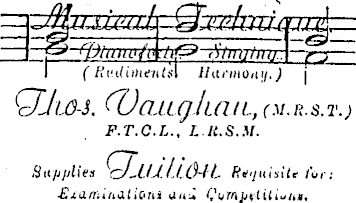 Musical Technique,
Pianoforte Singing
(Rudiments Harmony.)
Thos. Vaughan, (M.R.S.T.)
F.T.C.L., L.R.S.M.
Supplies Tuition Requisite for:
Examinations and Competitions.